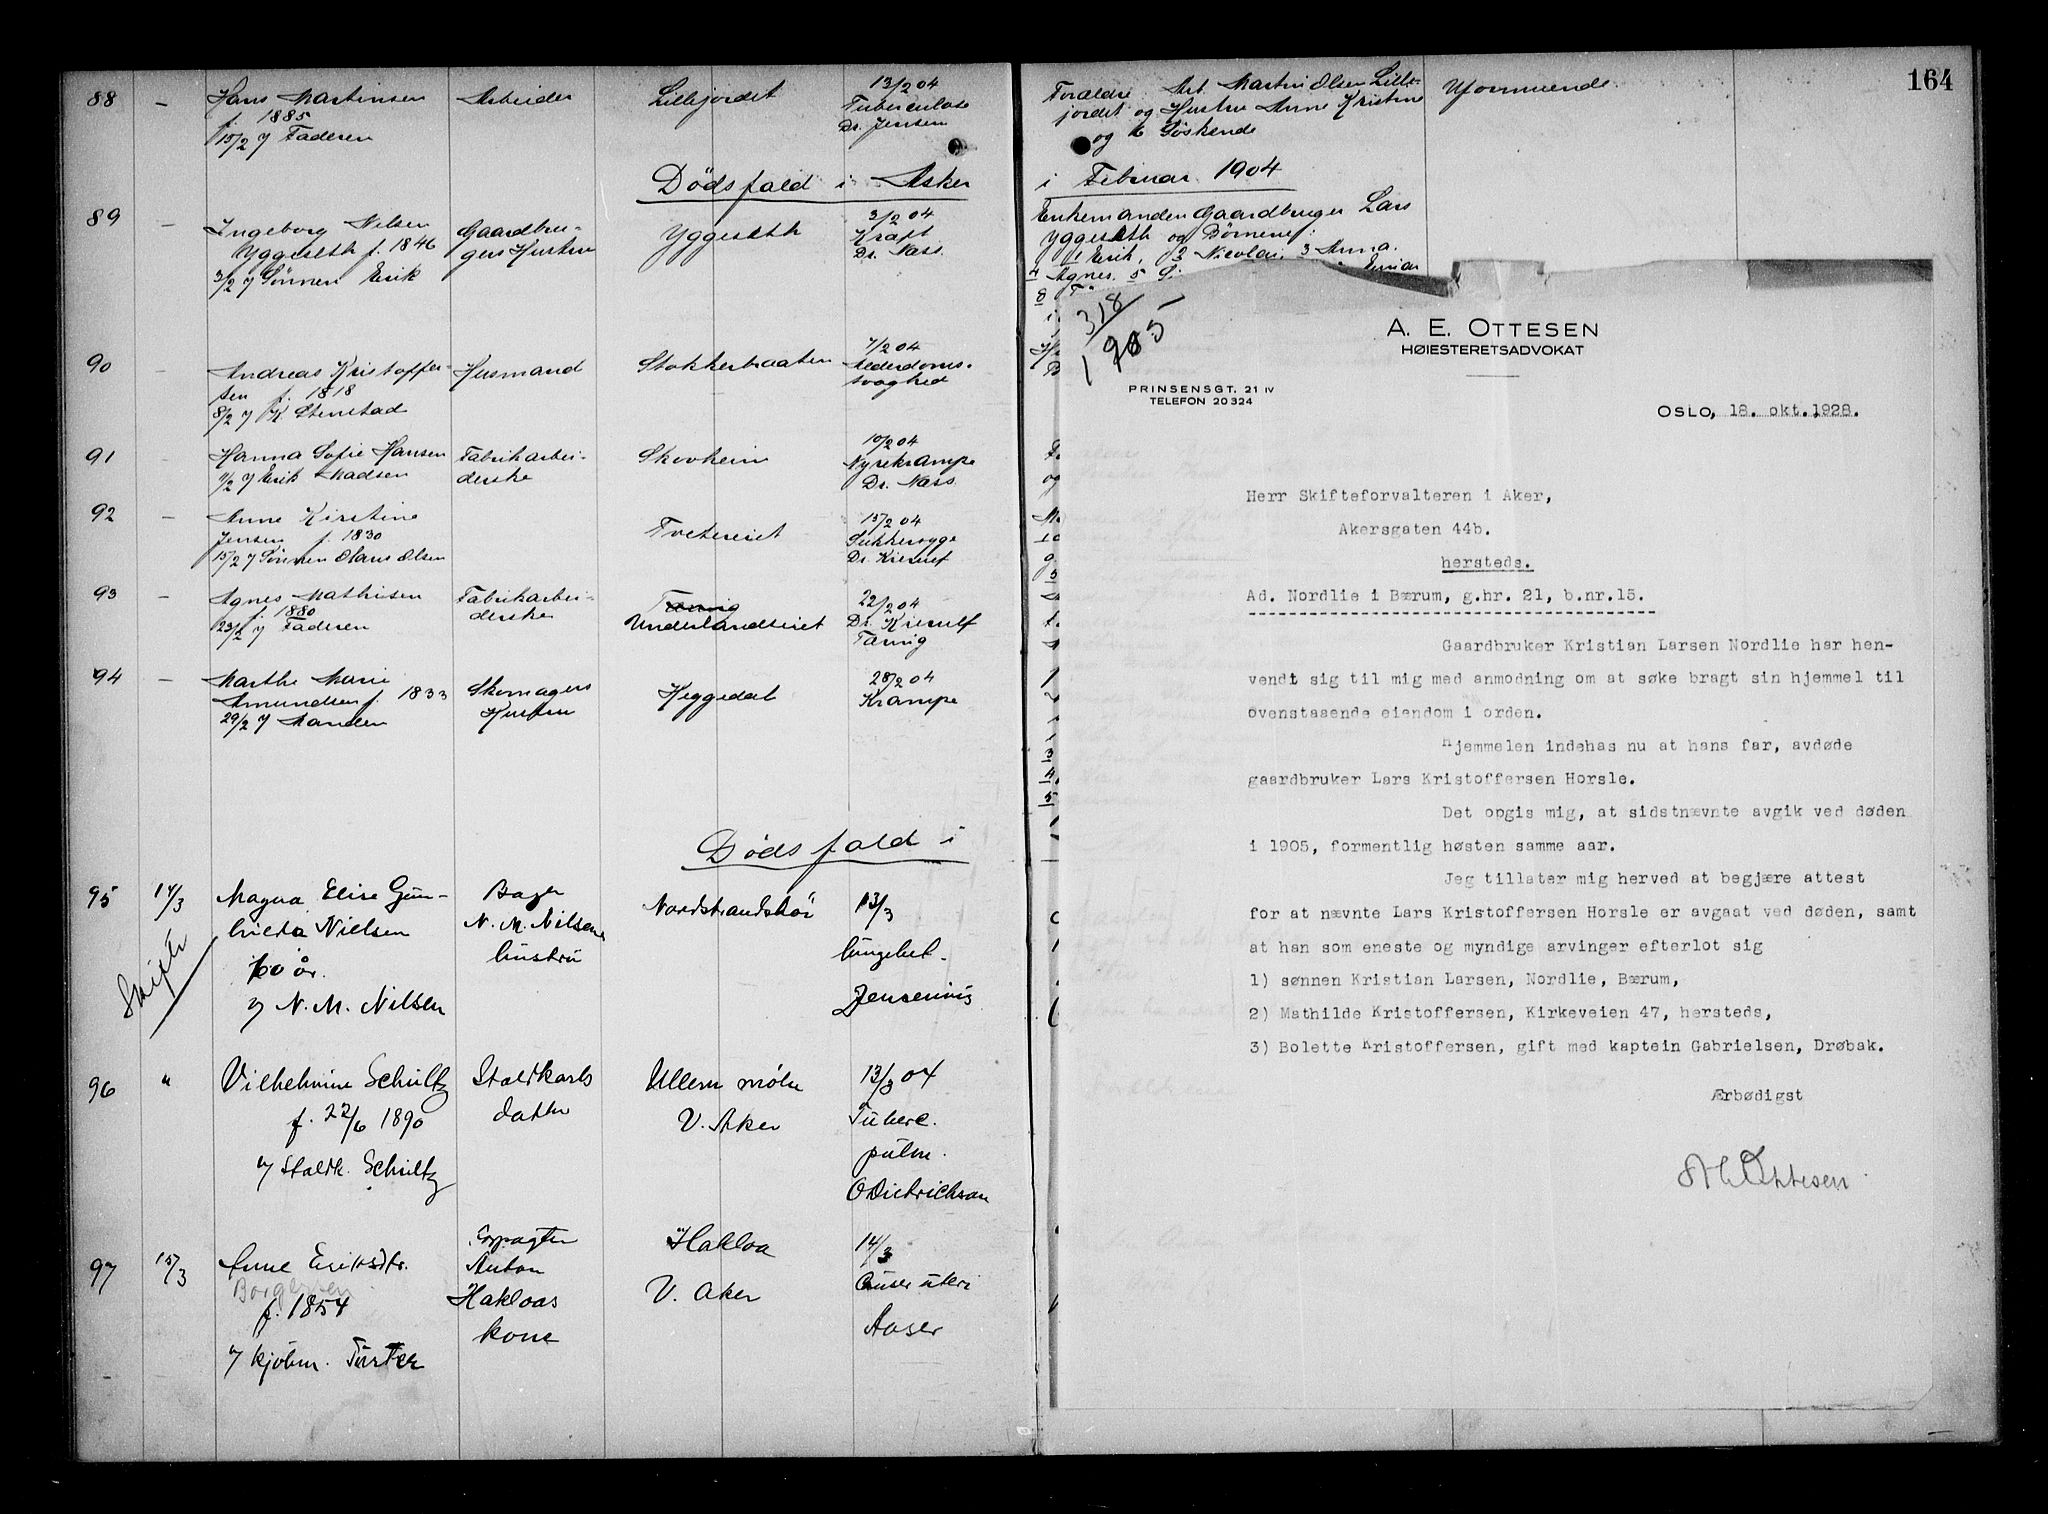 164
88 - Hans Martinsen Arbeider Lillejordet 13/2 04
f. 1885 Tuberculose
15/2 7 Faderen Dr. Jensen
Forældre Arb. Martin Olsen Lille-
jordet og Hustru Anne Kristine
og 6 Söskende
Uformuende.
Dödsfald i Asker
i Februar 1904
89 - Ingeborg Nilsen Gaardbru- Yggeseth 3/2 04
Yggeseth f. 1846 gers Hustru Kraft
3/2 7 Sönnen Erik Dr. Nass.
Enkemanden Gaardbruger Lars
Yggeseth og Börnene:
1 Erik, 2 Nicolai, 3 Anna.
4 Agnes. 5
8
90 - Andreas Kristoffer- Husmand Stokkerbraaten 7/2 04
sen f. 1818 Alderdoms-
8/2 7 K. Stenstad svaghed
91 - Hanna Sofie Hansen Fabrikarbei- Skovheim 10/2 04
11/2 7 Erik Madsen derske Nyrekrampe
Dr. Nass.
92 - Anne Kirstine Tvetereiet 15/2 04
Jensen f. 1830 Sukkersyge
15/2 7 Sönnen Olaus Olsen Dr. Kierulf
93 - Agnes Mathisen Fabrikarbei- 22/2 04
f. 1880 derske Underlandseiet Dr. Kierulf
23/2 7 Faderen Tæring
94 - Marthe Marie Skomagers Heggedal 28/2 04
Amundsen f. 1833 Hustru Krampe
29/2 7 Manden
Dödsfald i
95 14/3 Magna Elise Gun- Bager Nordstrandshöi 13/3
hilda Nielsen N. M. Nilsens lungebet.
60 år. hustru Jensenius
7 N. M. Nilsen
Skifte
96 " Vilhelmine Schultz Staldkarls Ullern mölle 13/3 04
f. 22/6 1890 datter V. Aker Tuberc.
7 Staldk. Schultz pulm.
O Dietrichson
97 15/3 Anne Eriksdtr. Forpagter Hakloa 14/3
Borgersen Anton V. Aker Cancer uteri
f. 1854 Hakloas Aaser
7 kjöbm. Furter kone
318/1905
A. E. OTTESEN
HØIESTERETSADVOKAT
PRINSENSGT. 21 IV
TELEFON 20324
OSLO, 18. okt. 1928.
Herr Skifteforvalteren i Aker,
Akersgaten 44b.
hersteds.
Ad. Nordlie i Bærum, g.hr. 21, b.nr.15.
Gaardbruker Kristian Larsen Nordlie har hen-
vendt sig til mig med anmodning om at søke bragt sin hjemmel til
ovenstaaende eiendom i orden.
Hjemmelen indehas nu at hans far, avdøde
gaardbruker Lars Kristoffersen Horsle.
Det opgis mig, at sidstnævnte avgik ved døden
i 1905, formentlig høsten samme aar.
Jeg tillater mig herved at begjære attest
for at nævnte Lars Kristoffersen Horsle er avgaat ved døden, samt
at han som eneste og myndige arvinger efterlot sig
1) sønnen Kristian Larsen, Nordlie, Bærum,
2) Mathilde Kristoffersen, Kirkeveien 47, hersteds,
3) Bolette Kristoffersen, gift med kaptein Gabrielsen, Drøbak.
Ærbødigst
A E Ottesen